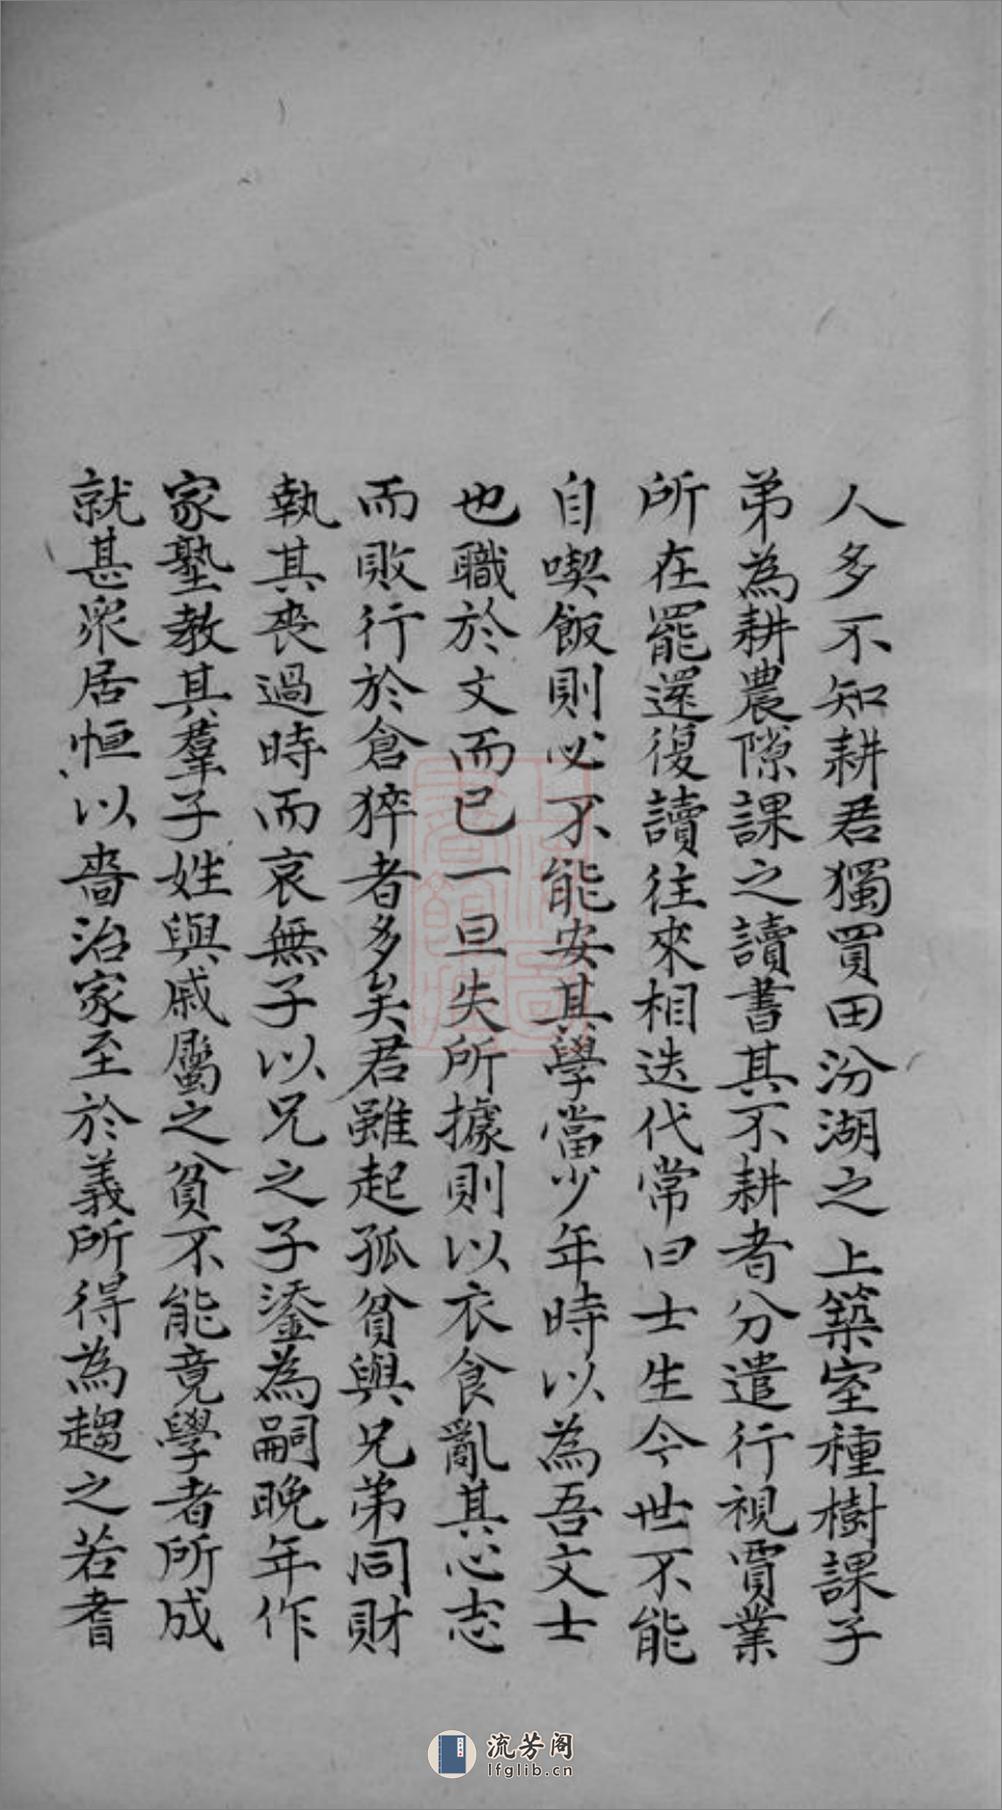 人多不知耕君獨買田汾湖之上築室種樹課子
弟為耕農隙課之讀書其不耕者分遣行視賈業
所在罷還復讀往來相迭代常曰士生今世不能
自喫飯則必不能安其學當少年時以為吾文士
也職於文而已一旦失所據則以衣食亂其心志
而敗行於倉猝者多矣君雖起孤貧與兄弟同財
執其喪過時而哀無子以兄之子鋈為嗣晚年作
家塾教其羣子姓與戚屬之貧不能竟學者所成
就甚衆居恒以嗇治家至於義所得為趨之若耆
流芳阁
lfglib.cn